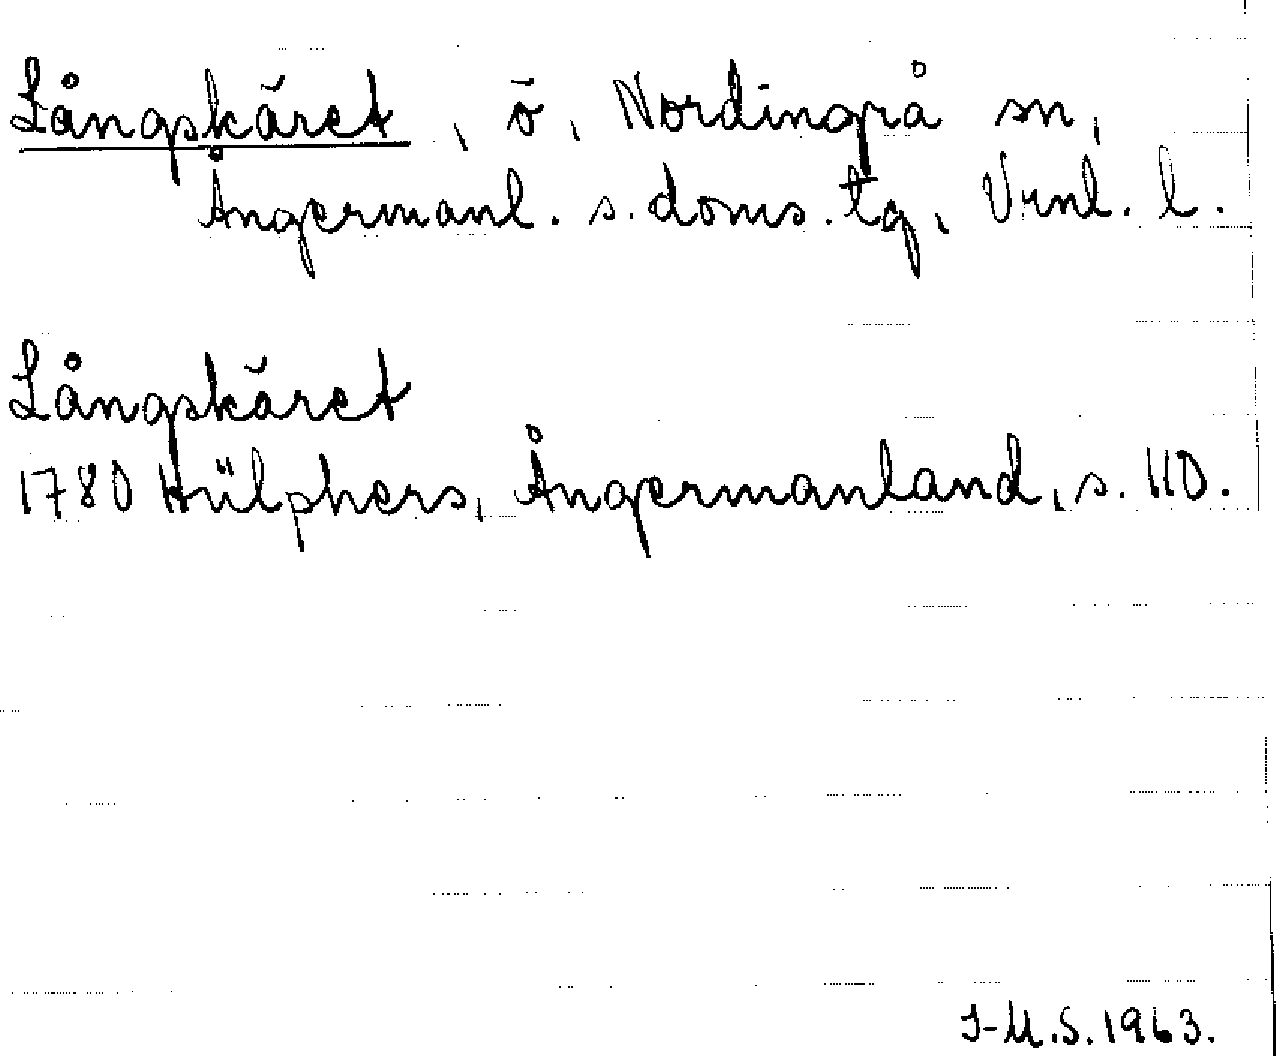 Långskäret, ö, Nordingrå sn,
Ångermanl. s. doms. tg, Vrnl. l.
Långskäret
1780 Hülphers, Ångermanland, s. 110.
I-M.S. 1963.